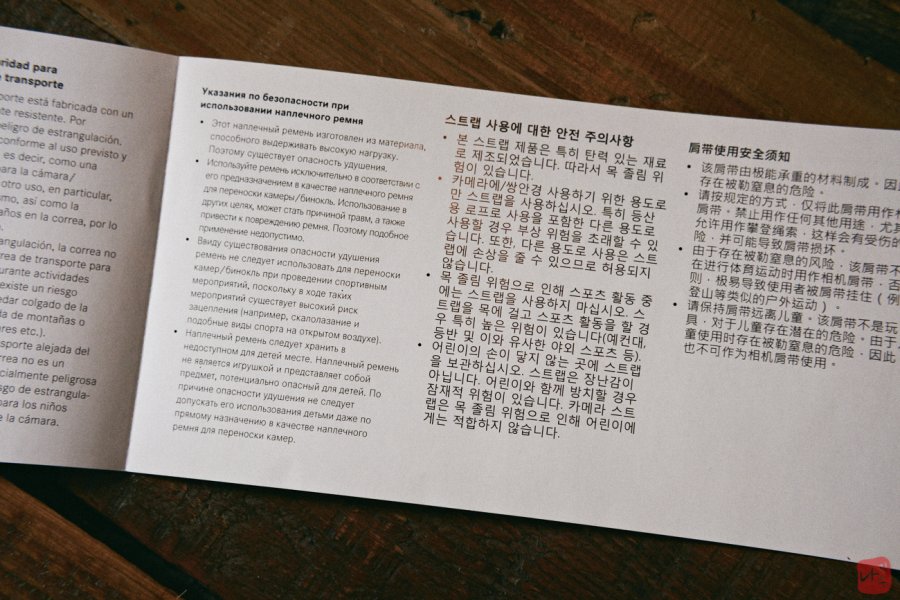 ridad para
e transporte
porte está fabricada con un
te resistente. Por
peligro de estrangulación.
conforme al uso previsto y
es decir, como una
para la cámara/
otro uso, en particular,
mo, así como la
años en la correa, por lo
angulación, la correa no
rea de transporte para
urante actividades
existe un riesgo
edar colgado de la
da de montañas o
ares etc.).
sporte alejada del
rrea no es un
cialmente peligrosa
sgo de estrangula-
para los niños
e la cámara.
Указания по безопасности при
использовании наплечного ремня
• Этот наплечный ремень изготовлен из материала,
способного выдерживать высокую нагрузку.
Поэтому существует опасность удушения.
• Используйте ремень исключительно в соответствии с
его предназначением в качестве наплечного ремня
для переноски камеры/бинокль. Использование в
других целях, может стать причиной травм, а также
привести к повреждению ремня. Поэтому подобное
применение недопустимо.
• Ввиду существования опасности удушения
ремень не следует использовать для переноски
камер/бинокль при проведении спортивным
мероприятий, поскольку в ходе таких
мероприятий существует высокий риск
зацепления (например, скалолазание и
подобные виды спорта на открытом воздухе).
• Наплечный ремень следует хранить в
недоступном для детей месте. Наплечный ремень
не является игрушкой и представляет собой
предмет, потенциально опасный для детей. По
причине опасности удушения не следует
допускать его использования детьми даже по
прямому назначению в качестве наплечного
ремня для переноски камер.
스트랩 사용에 대한 안전 주의사항
• 본 스트랩 제품은 특히 탄력 있는 재료
로 제조되었습니다. 따라서 목 졸림 위
험이 있습니다.
• 카메라에/쌍안경 사용하기 위한 용도로
만 스트랩을 사용하십시오. 특히 등산
용 로프로 사용을 포함한 다른 용도로
사용할 경우 부상 위험을 초래할 수 있
습니다. 또한, 다른 용도로 사용은 스트
랩에 손상을 줄 수 있으므로 허용되지
않습니다.
• 목 졸림 위험으로 인해 스포츠 활동 중
에는 스트랩을 사용하지 마십시오. 스
트랩을 목에 걸고 스포츠 활동을 할 경
우 특히 높은 위험이 있습니다(예컨대,
등반 및 이와 유사한 야외 스포츠 등).
• 어린이의 손이 닿지 않는 곳에 스트랩
을 보관하십시오. 스트랩은 장난감이
아닙니다. 어린이와 함께 방치할 경우
잠재적 위험이 있습니다. 카메라 스트
랩은 목 졸림 위험으로 인해 어린이에
게는 적합하지 않습니다.
肩带使用安全须知
• 该肩带由极能承重的材料制成。因此
存在被勒窒息的危险。
• 请按规定的方式，仅将此肩带用作相
肩带。禁止用作任何其他用途，尤其
允许用作攀登绳索，这样会有受伤的
险，并可能导致肩带损坏。
• 由于存在被勒窒息的风险，该肩带不
在进行体育运动时用作相机肩带，否
则，极易导致使用者被肩带挂住（例
登山等类似的户外运动）。
• 请保持肩带远离儿童。该肩带不是玩
具，对于儿童存在潜在的危险。由于
童使用时存在被勒窒息的危险，因此
也不可作为相机肩带使用。